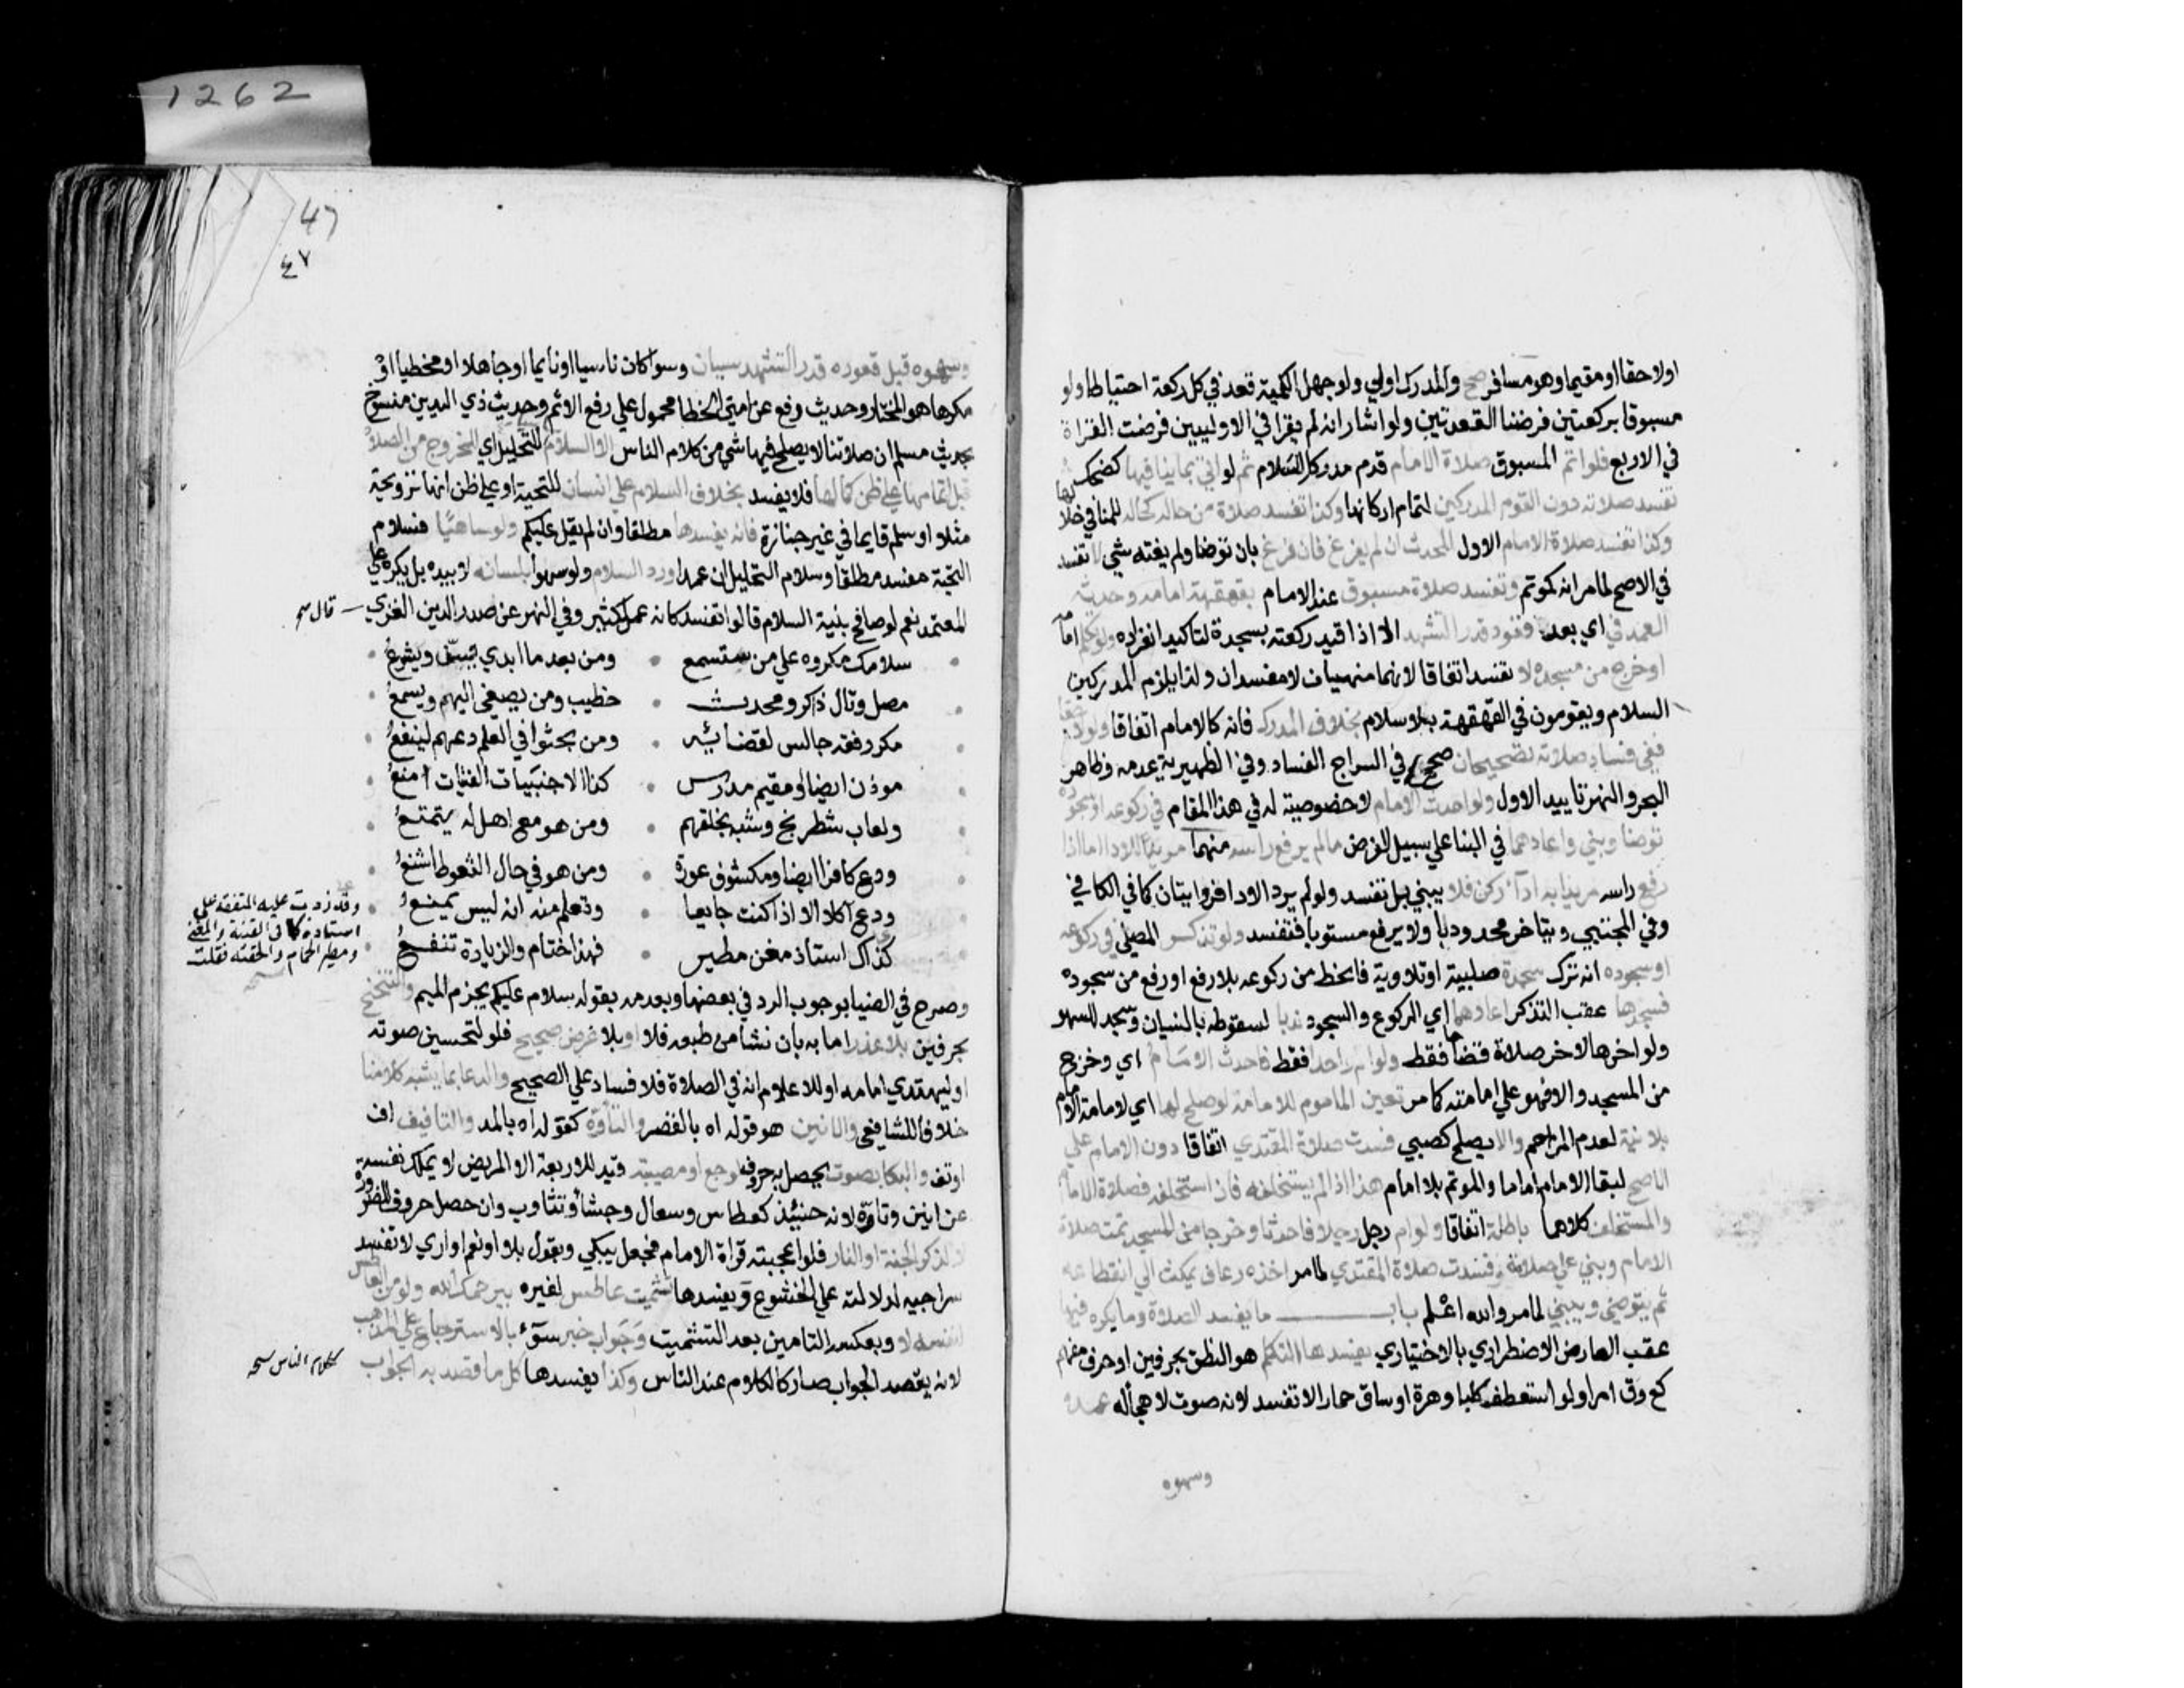 1262
اولاحقا او مقيما وهو مسافر صح والمدرك اولي ولو جهل الكمية قعد في كل ركعة احتياطا ولو
مسبوقا بركعتين فرضنا القعدتين ولو اشار انه لم يقرا في الاوليين فرضت القراة
في الاربع فلو اتم المسبوق صلاة الامام قدم مدركا للسلام ثم لو اتي بما ينافيها كضحك
تفسد صلاته دون القوم المدركين لتمام اركانها وكذا تفسد صلاة من حاله كحاله للمنافي خلالها
وكذا تفسد صلاة الامام الاول المحدث ان لم يفرغ فان فرغ بان توضا ولم يفته شي لا تفسد
في الاصح لما مر انه كموتم وتفسد صلاة مسبوق عند الامام بقهقهة امامه وحدثه
العمد في اي بعد قعود قدر التشهد الا اذا قيد ركعته بسجدة لتاكيد انفراده ولو تكلم امامه
او خرج من مسجده لا تفسد اتفاقا لانهما منهيان لا مفسدان ولذا يلزم المدركين
السلام ويقومون في القهقهة بلا سلام بخلاف المدرك فانه كالامام اتفاقا ولو لاحقا
ففي فساد صلاته تصحيحان صحح في السراج الفساد وفي الظهيرية عدمه وظاهر
البحر والنهر تاييد الاول ولو احدث الامام لا خصوصية له في هذا المقام في ركوعه او سجوده
توضا وبني واعادهما في البنا علي سبيل الفرض ما لم يرفع راسه منهما مريدا للادا اما اذا
رفع راسه مريدا به ادآ ركن فلا يبني بل تفسد ولو لم يرد الادا فروايتان كما في الكافي
وفي المجتبي ويتاخر محدودبا ولا يرفع مستويا فتفسد ولو تذكر المصلي في ركوعه
او سجوده انه ترك سجدة صلبية او تلاوية فانحط من ركوعه بلا رفع او رفع من سجوده
فسجدها عقب التذكر اعادهما اي الركوع والسجود ندبا لسقوطه بالنسيان وسجد للسهو
ولو اخرها لاخر صلاة قضاها فقط ولو ام واحدا فقط فاحدث الامام اي وخرج
من المسجد والا فهو علي امامته كما مر تعين الماموم للامامة لو صلح لها اي لامامة الامام
بلا نية لعدم المزاحم والا يصلح كصبي فسدت صلاة المقتدي اتفاقا دون الامام علي
الاصح لبقا الامام اماما والموتم بلا امام هذا اذا لم يستخلفه فان استخلفه فصلاة الامام
والمستخلف كلاهما باطلة اتفاقا ولو ام رجل رجلا فاحدثا وخرجا من المسجد تمت صلاة
الامام وبني علي صلاته وفسدت صلاة المقتدي لما مر اخذه رعاف يمكث الي انقطاعه
ثم يتوضي ويبني لما مر والله اعلم باب ما يفسد الصلاة وما يكره فيها
عقب العارض الاضطراري بالاختياري يفسدها التكلم هو النطق بحرفين او حرف مفهم
كع وق امرا ولو استعطف كلبا وهرة او ساق حمارا لا تفسد لانه صوت لا هجأ له عمده
وسهوه
47
٤٧
وسهوه قبل قعوده قدر التشهد سيان وسوا كان ناسيا او نايما او جاهلا او مخطيا او
مكرها هو المختار وحديث رفع عن امتي الخطا محمول علي رفع الاثم وحديث ذي اليدين منسوخ
بحديث مسلم ان صلاتنا لا يصلح فيها شي من كلام الناس الا السلام للتحليل اي الخروج من الصلاة
قبل اتمامها علي ظن كمالها فلا يفسد بخلاف السلام علي انسان للتحية او علي ظن انها ترويحة
مثلا او سلم قايما في غير جنازة فانه يفسدها مطلقا وان لم يقل عليكم ولو ساهيا فسلام
التحية مفسد مطلقا وسلام التحليل ان عمدا ورد السلام ولو سهوا بلسانه لا بيده بل يكره علي
المعتمد نعم لو صافح بنية السلام قالوا تفسد كانه عمل كثير وفي النهر عن صدر الدين الغزي
قال
سلامك مكروه علي من ستسمع ومن بعد ما ابدي يسن ويشرع
مصل وتال ذاكر ومحدث خطيب ومن يصغي اليهم ويسمع
مكرر فقه جالس لقضائه ومن بحثوا في العلم دعهم لينفعوا
موذن ايضا او مقيم مدرس كذا الاجنبيات الفتيات امنع
ولعاب شطرنج وشبه بخلقهم ومن هو مع اهل له يتمتع
ودع كافرا ايضا ومكشوف عورة ومن هو في حال التغوط اشنع
ودع آكلا الا اذا كنت جايعا وتعلم منه انه ليس يمنع
وقد زدت عليه المتفقه علي
استاذه كما في القنية والمغني
ومطير الحمام والحقته فقلت
كذاك استاذ مغن مطير فهذا ختام والزيادة تنفع
وصرح في الضيا بوجوب الرد في بعضها وبعدمه بقوله سلام عليكم بجزم الميم والتنحنح
بحرفين بلا عذر اما به بان نشا من طبعه فلا او بلا غرض صحيح فلو لتحسين صوته
او ليهتدي امامه او للاعلام انه في الصلاة فلا فساد علي الصحيح والدعا بما يشبه كلامنا
خلافا للشافعي والانين هو قوله اه بالقصر والتأوه كقوله اه بالمد والتافيف اف
او تف والبكا بصوت يحصل به حروف لوجع او مصيبة قيد للاربعة الا لمريض لا يملك نفسه
عن انين وتاوه لانه حينئذ كعطاس وسعال وجشأ وتثاوب وان حصل حروف للضرورة
لا لذكر الجنة او النار فلو اعجبته قراة الامام فجعل يبكي ويقول بلا او نعم او اري لا تفسد
سراجيه لدلالته علي الخشوع ويفسدها تشميت عاطس لغيره بيرحمك الله ولو من العاطس
لنفسه لا وبعكسه التامين بعد التشميت وجواب خبر سوٓء بالاسترجاع علي المذهب
لانه يقصد الجواب صار ككلام الناس عند الناس وكذا يفسدها كل ما قصد به الجواب
كلام الناس صح